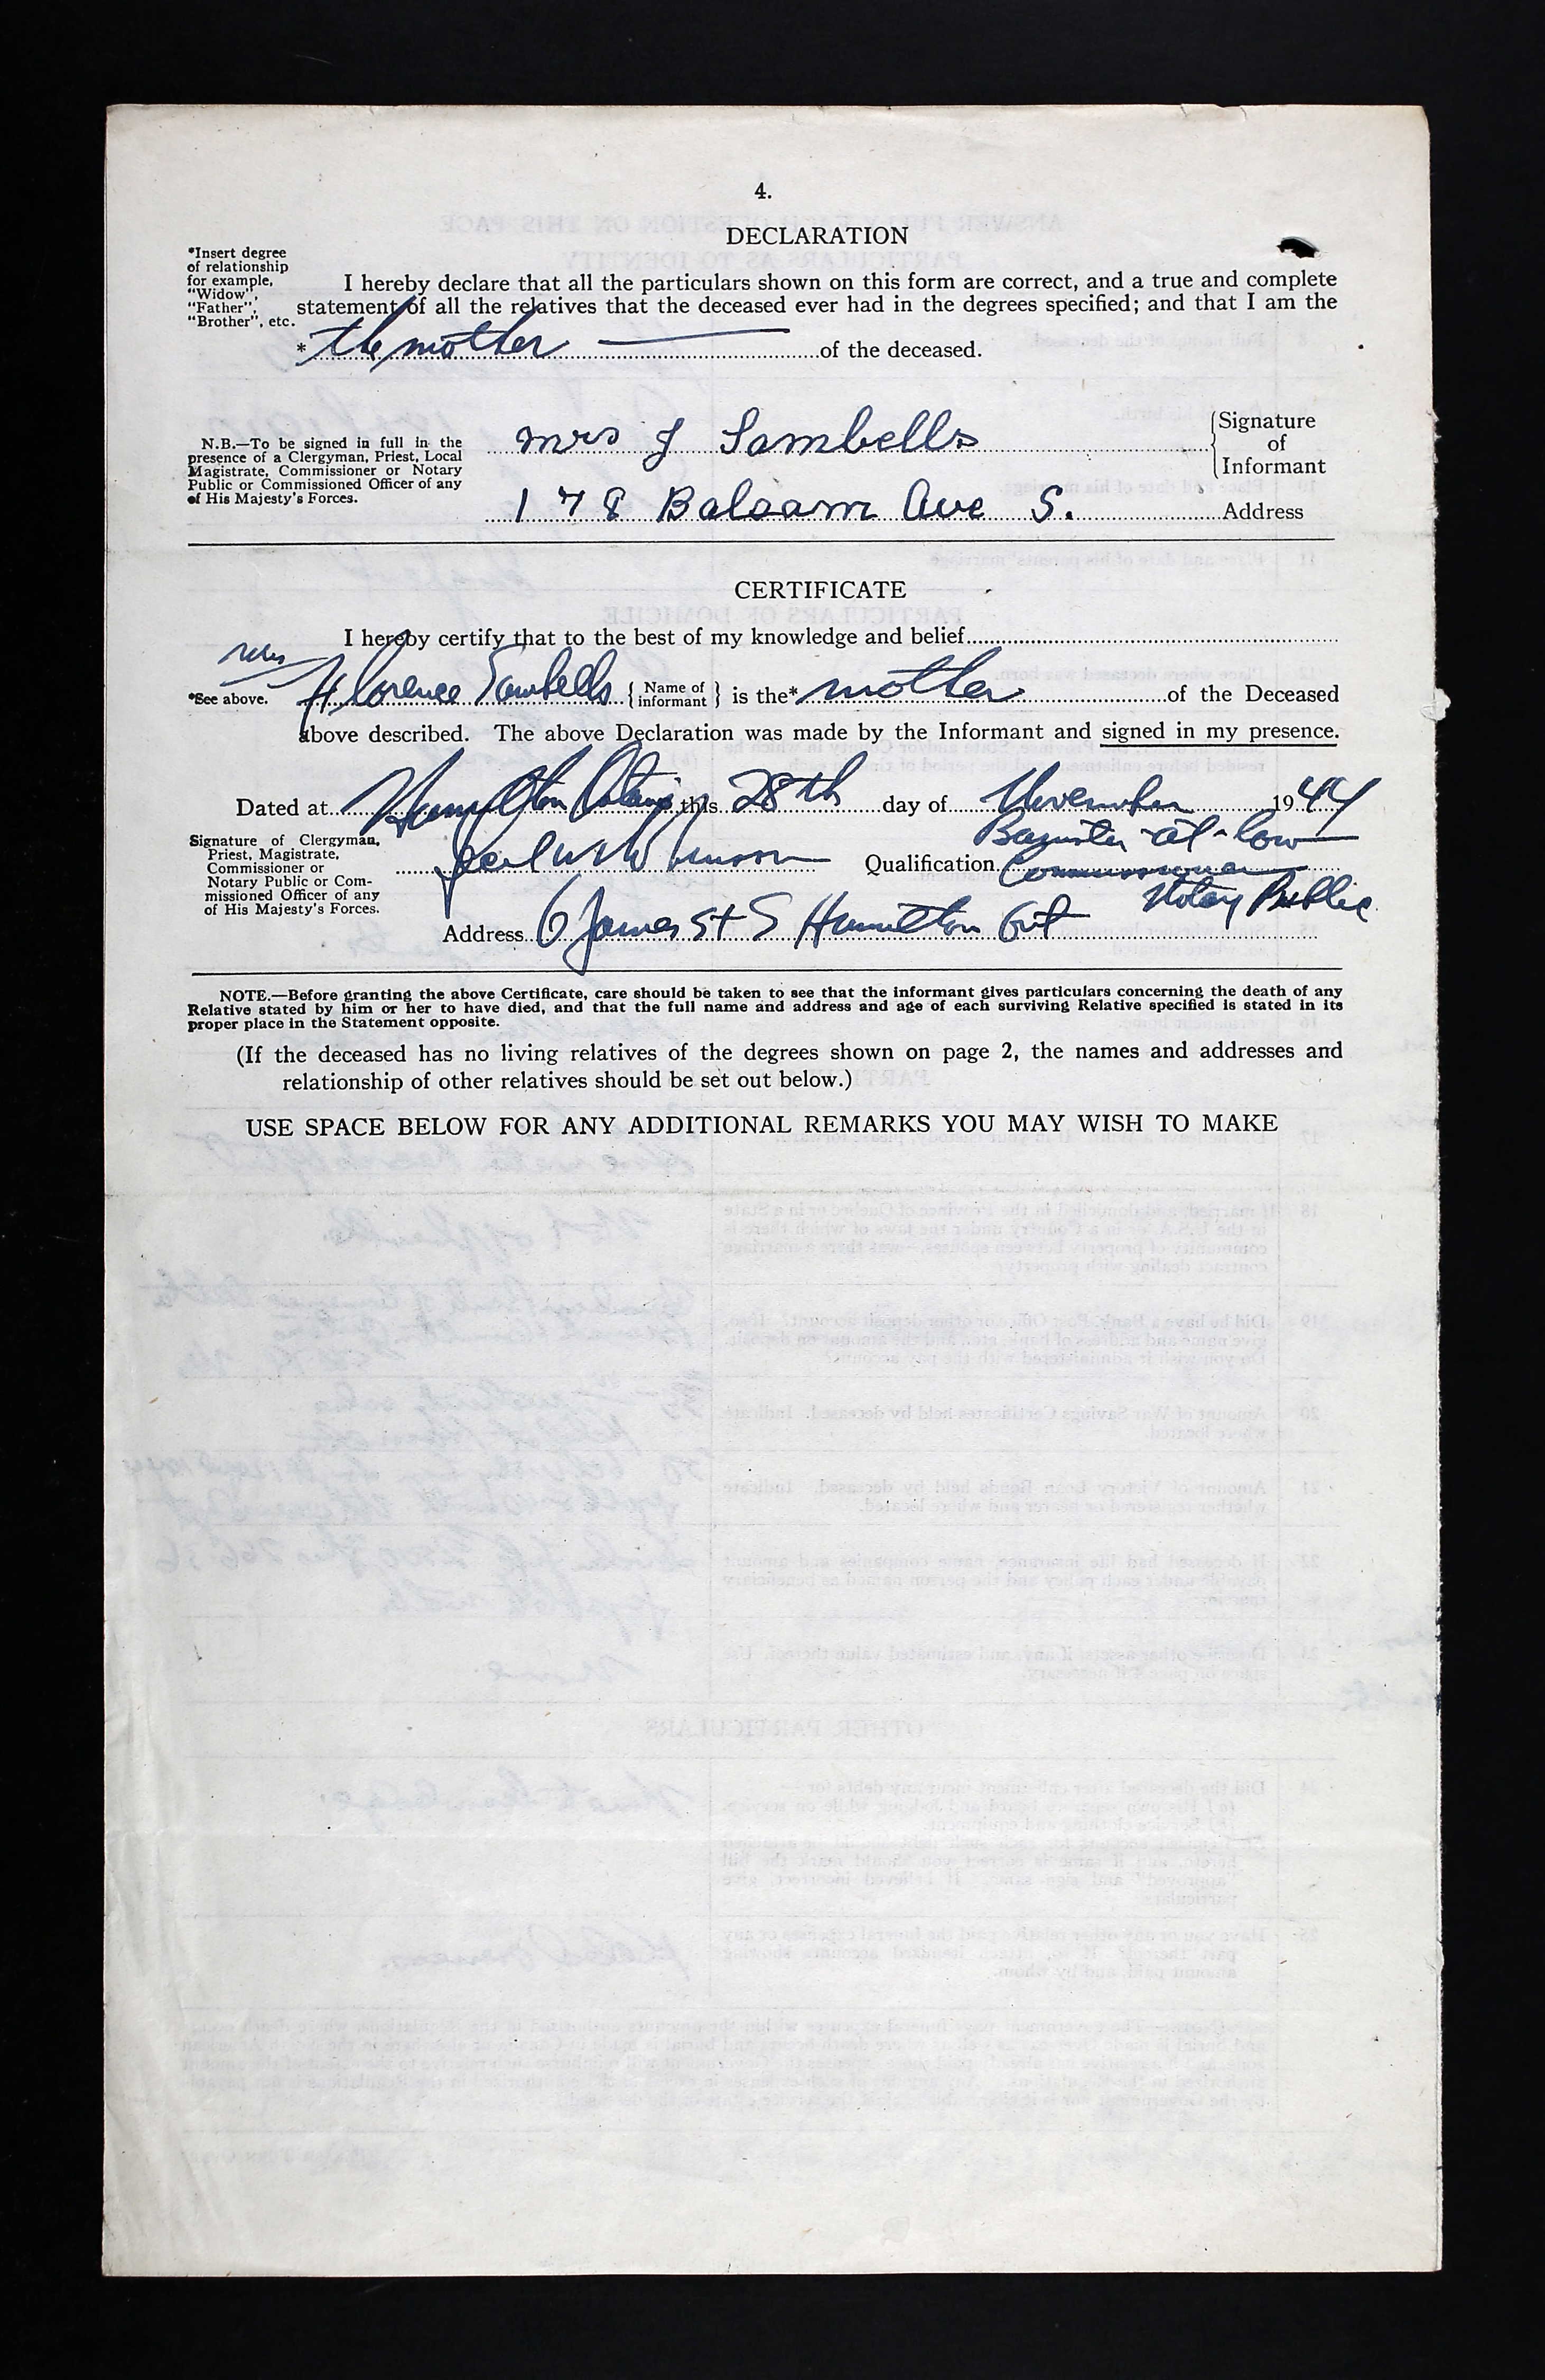 4.
DECLARATION
*Insert degree
of relationship
for example,
"Widow",
"Father",
"Brother", etc.
I hereby declare that all the particulars shown on this form are correct, and a true and complete
statement of all the relatives that the deceased ever had in the degrees specified; and that I am the
* the mother of the deceased.
N.B.—To be signed in full in the
presence of a Clergyman, Priest, Local
Magistrate, Commissioner or Notary
Public or Commissioned Officer of any
of His Majesty's Forces.
Mrs J Sambells
{Signature
of
Informant
178 Balsam Ave S. Address
CERTIFICATE
I hereby certify that to the best of my knowledge and belief
Mrs
*See above. Florence Sambells {Name of informant} is the* mother of the Deceased
above described. The above Declaration was made by the Informant and signed in my presence.
Dated at Hamilton Ontario this 28th day of November 1944
Signature of Clergyman,
Priest, Magistrate,
Commissioner or
Notary Public or Com-
missioned Officer of any
of His Majesty's Forces.
Barrister-at-law
Qualification Commissioner
Notary Public
Address 6 James St S Hamilton Ont
NOTE.—Before granting the above Certificate, care should be taken to see that the informant gives particulars concerning the death of any
Relative stated by him or her to have died, and that the full name and address and age of each surviving Relative specified is stated in its
proper place in the Statement opposite.
(If the deceased has no living relatives of the degrees shown on page 2, the names and addresses and
relationship of other relatives should be set out below.)
USE SPACE BELOW FOR ANY ADDITIONAL REMARKS YOU MAY WISH TO MAKE